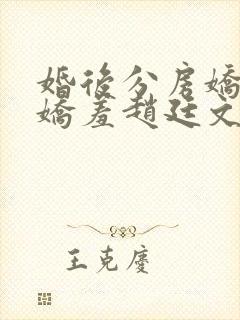 婚後分房嬌
嬌羞趙廷文
王克慶